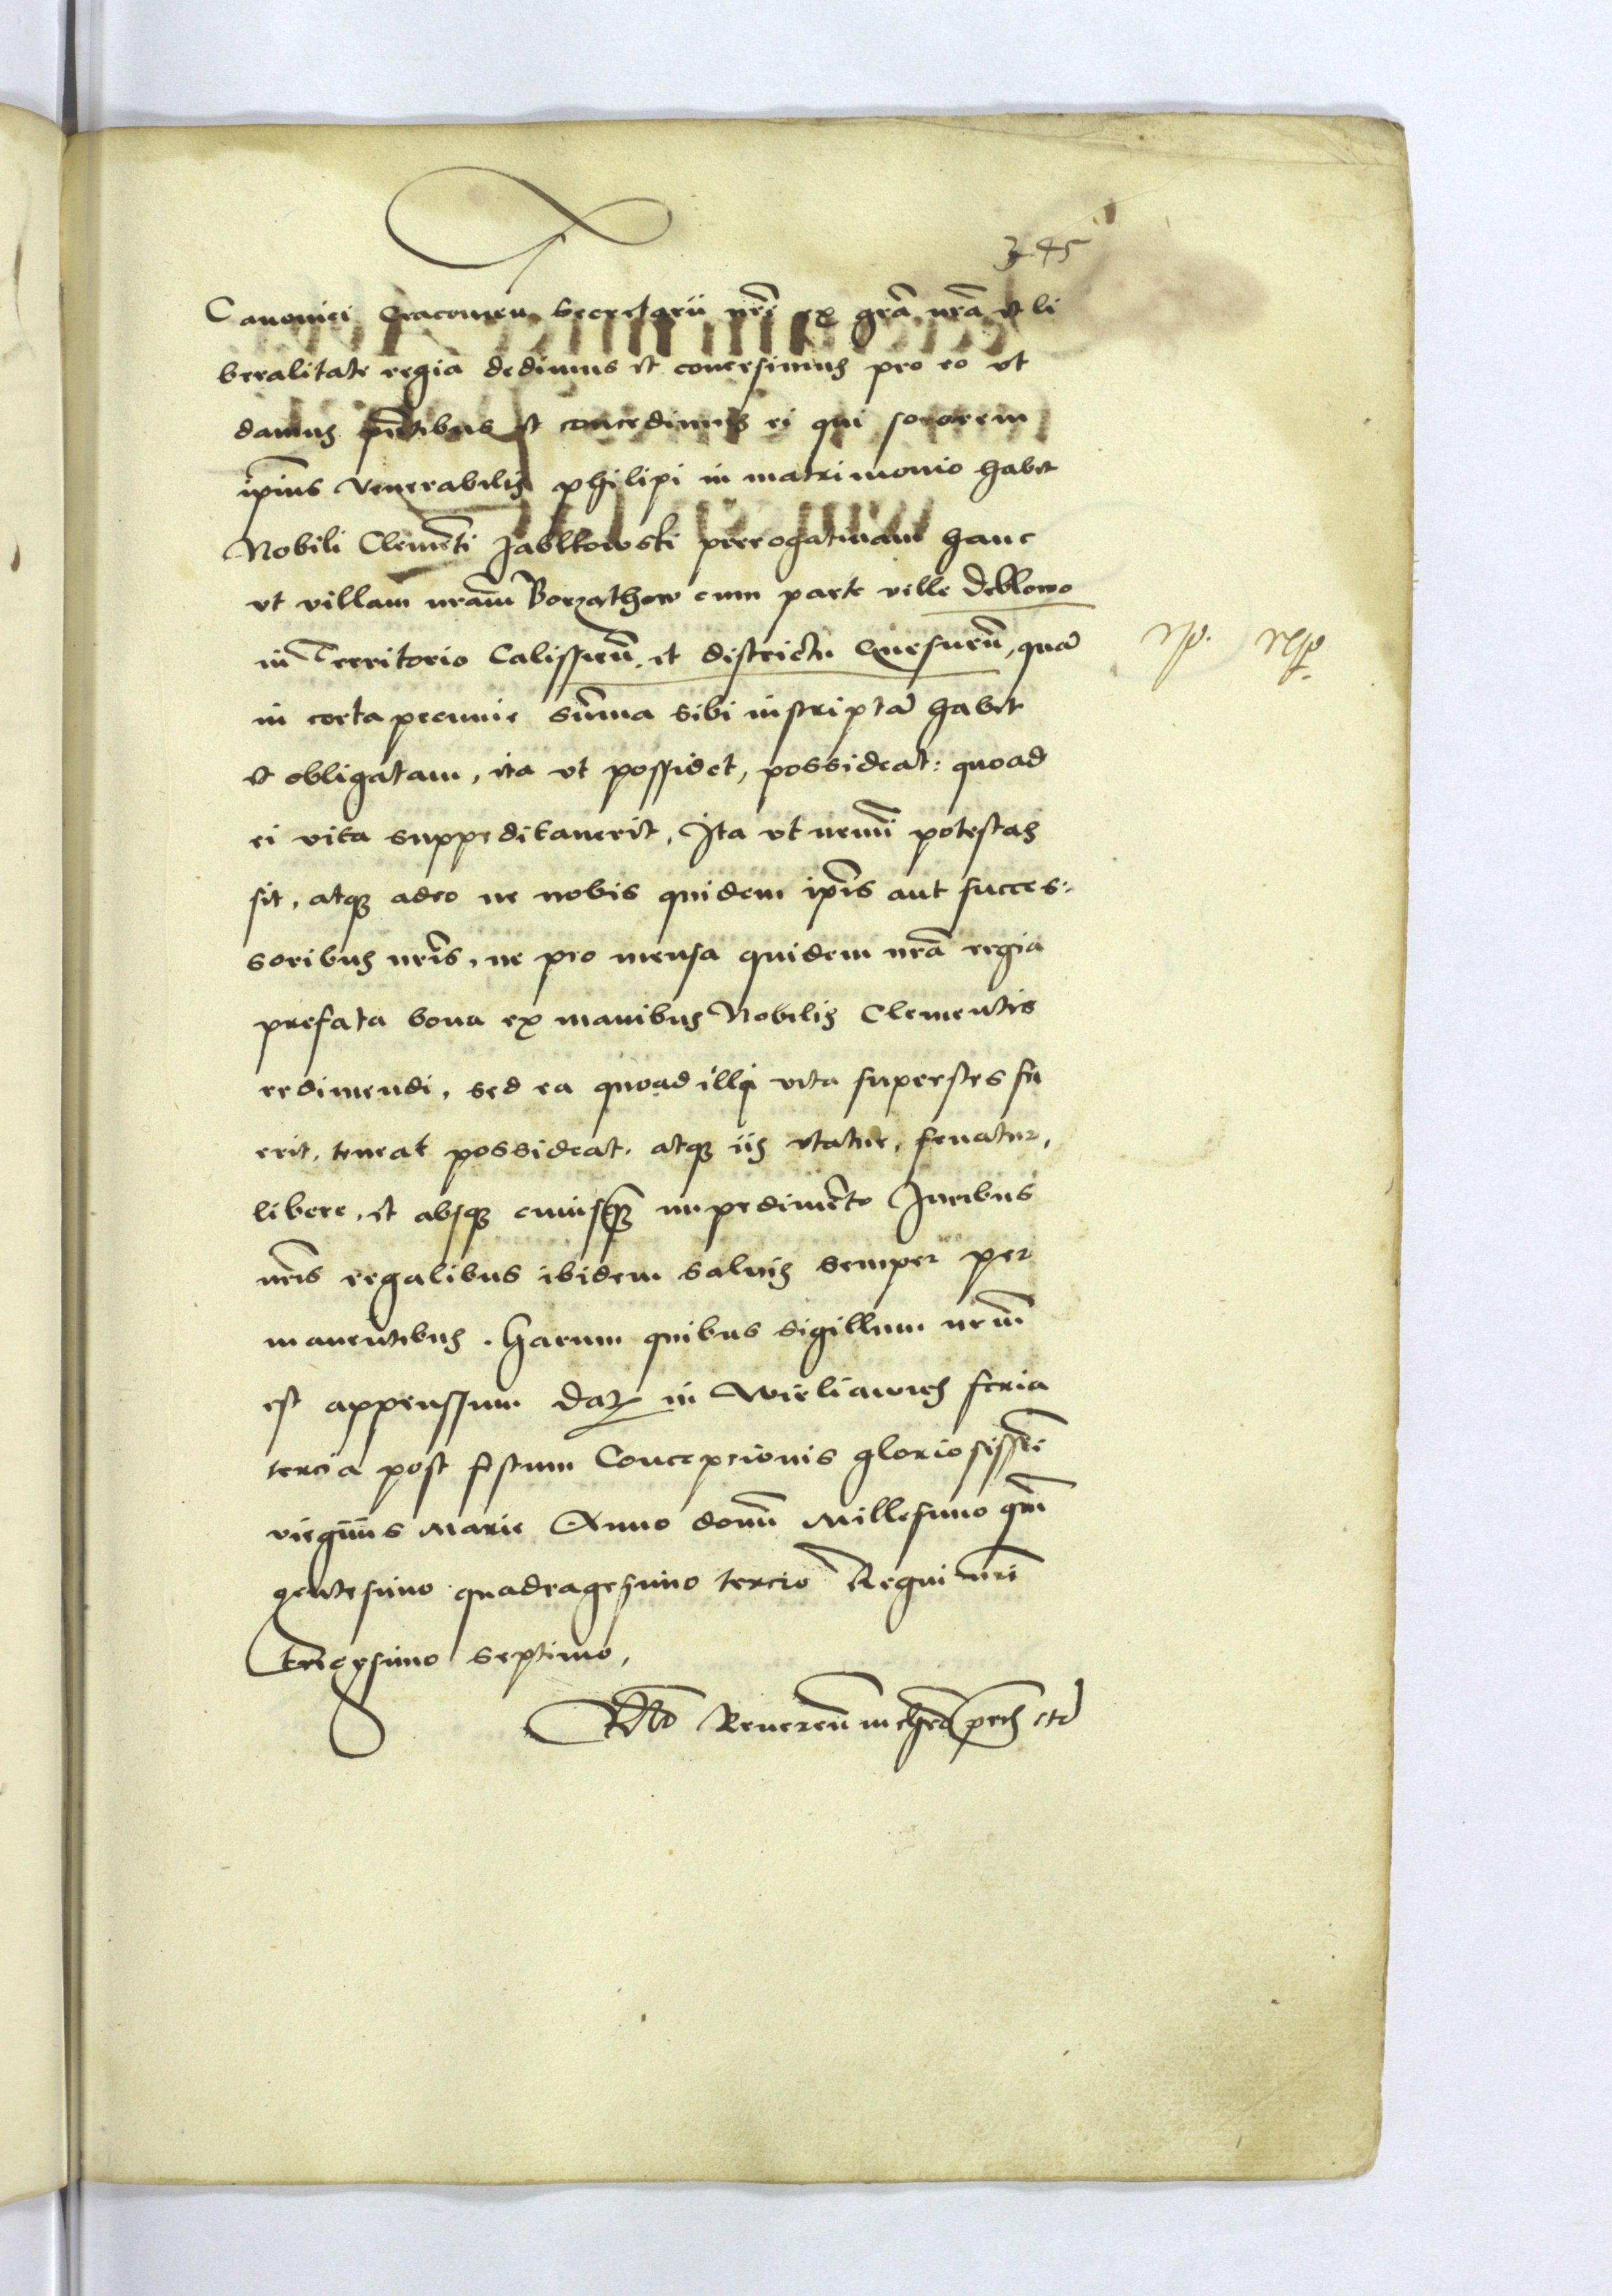 345
Canonici Cracovien Secretarii nri ex gra nra et li
beralitate regia dedimus et concessimus pro eo ut
damus pntibus et concedimus ei qui sororem
ipius Venerabilis philipi in matrimonio habet
Nobili Clementi Jabllkowski prerogativam hanc
ut villam nram Borzathow cum parte ville deblowo
in Territorio Calissien. et districtu Gnesnen, qua
in certa pecunie summa sibi inscripta habet
et obligatam, ita ut possidet, possideat: quoad
ei vita suppeditaverit, Ita ut nemi potestas
sit, atq adeo ne nobis quidem ipis aut succes:
soribus nris, ne pro mensa quidem nra regia
prefata bona ex manibus Nobilis Clementis
redimendi, sed ea quoad illi vita superstes fu
erit, teneat possideat, atq iis utatur, fruatur,
libere, et absq cuiusq impedimento Juribus
nris regalibus ibidem salvis semper per
manentibus. Harum quibus sigillum nrum
est appenssum Dat in Wieliawies feria
tercia post festum Concepcionis gloriosissei
virginis Marie Anno domi Millesimo qui
gentesimo quadragesimo tercio Regni nri
tricesimo septimo,
Reveren in chro pris etc